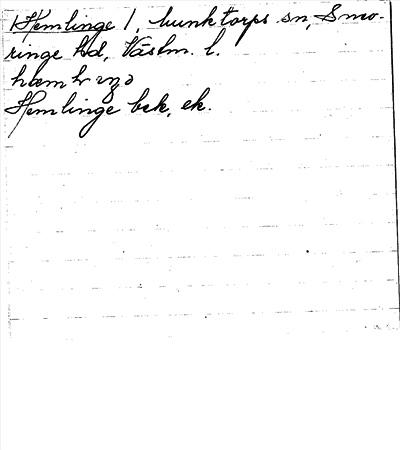 Hemlinge 1, Munktorps sn, Snev-
ringe hd, Västm. l.
Hemlinge bek, ek.